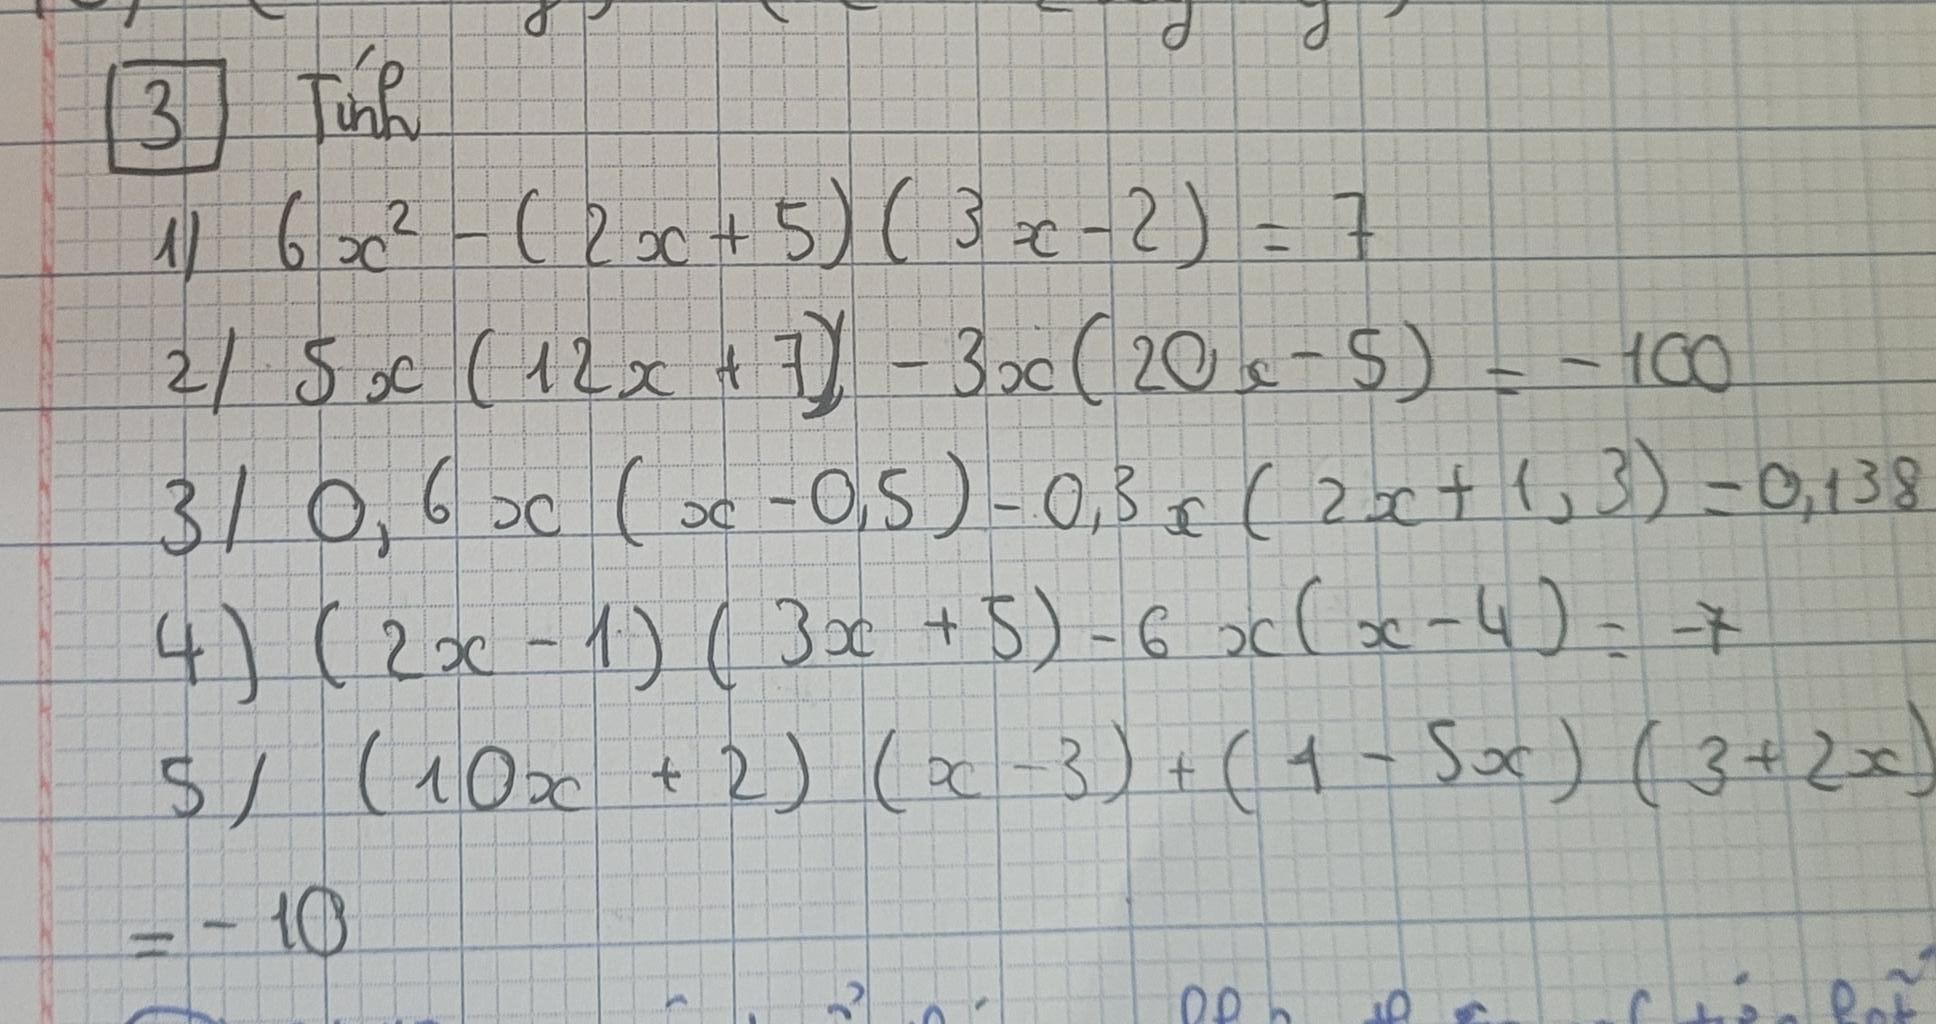 3 Tính
1) 6x² - (2x + 5) (3x - 2) = 7
2/ 5x (12x + 7) - 3x (20x - 5) = - 100
3/ 0,6x (x - 0,5) - 0,3x (2x + 1,3) = 0,138
4) (2x - 1) (3x + 5) - 6x (x - 4) = -7
5/ (10x + 2) (x - 3) + (1 - 5x) (3 + 2x)
= - 10